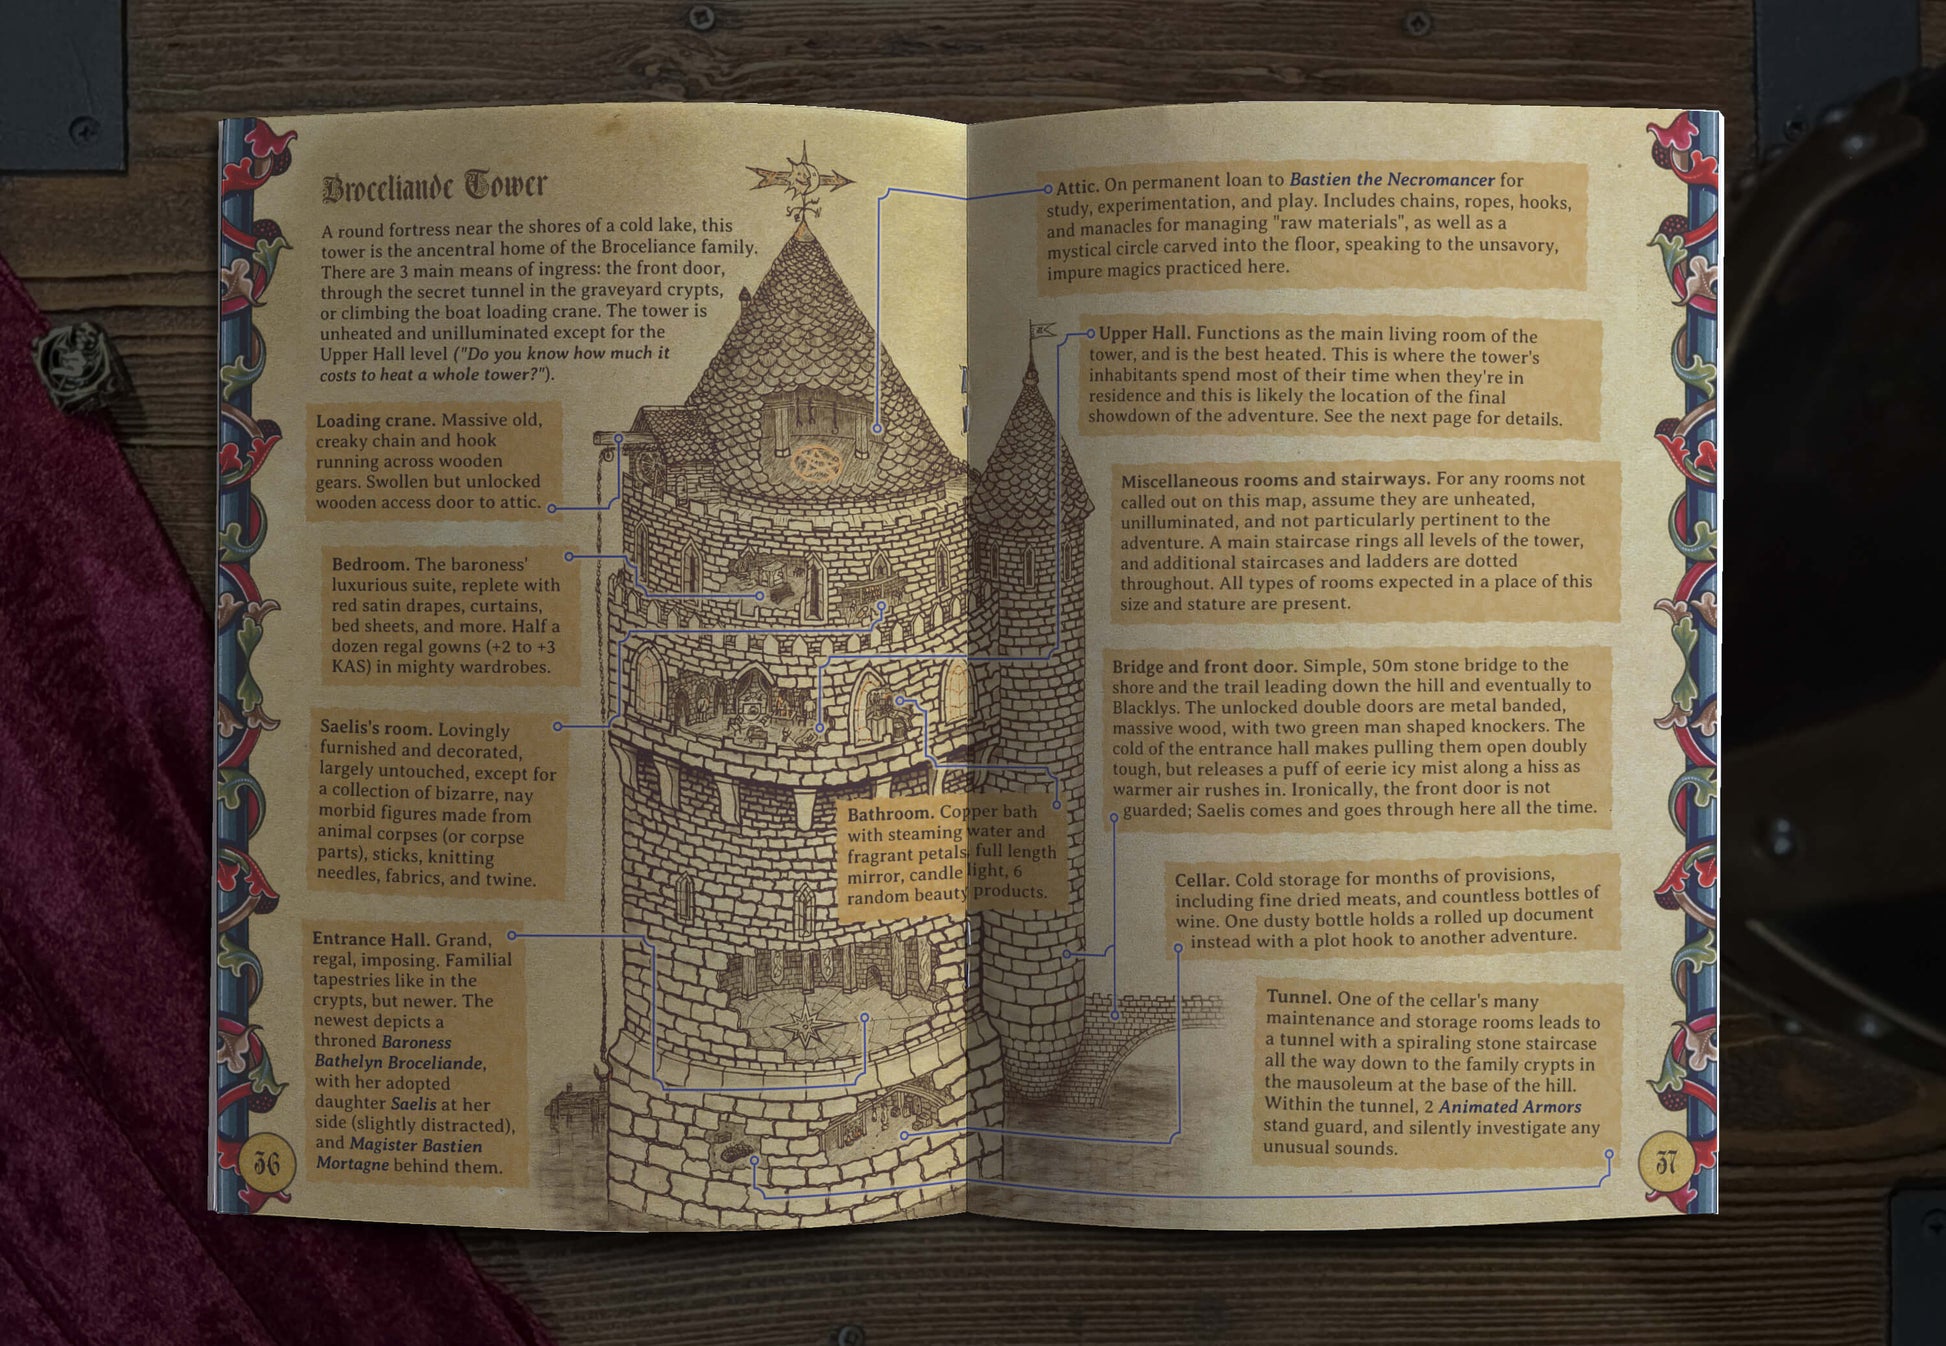 Broceliande Tower
A round fortress near the shores of a cold lake, this
tower is the ancentral home of the Broceliance family.
There are 3 main means of ingress: the front door,
through the secret tunnel in the graveyard crypts,
or climbing the boat loading crane. The tower is
unheated and unilluminated except for the
Upper Hall level ("Do you know how much it
costs to heat a whole tower?").
Loading crane. Massive old,
creaky chain and hook
running across wooden
gears. Swollen but unlocked
wooden access door to attic.
Bedroom. The baroness'
luxurious suite, replete with
red satin drapes, curtains,
bed sheets, and more. Half a
dozen regal gowns (+2 to +3
KAS) in mighty wardrobes.
Saelis's room. Lovingly
furnished and decorated,
largely untouched, except for
a collection of bizarre, nay
morbid figures made from
animal corpses (or corpse
parts), sticks, knitting
needles, fabrics, and twine.
Entrance Hall. Grand,
regal, imposing. Familial
tapestries like in the
crypts, but newer. The
newest depicts a
throned Baroness
Bathelyn Broceliande,
with her adopted
daughter Saelis at her
side (slightly distracted),
and Magister Bastien
Mortagne behind them.
36
Bathroom. Copper bath
with steaming water and
fragrant petals, full length
mirror, candle light, 6
random beauty products.
Attic. On permanent loan to Bastien the Necromancer for
study, experimentation, and play. Includes chains, ropes, hooks,
and manacles for managing "raw materials", as well as a
mystical circle carved into the floor, speaking to the unsavory,
impure magics practiced here.
Upper Hall. Functions as the main living room of the
tower, and is the best heated. This is where the tower's
inhabitants spend most of their time when they're in
residence and this is likely the location of the final
showdown of the adventure. See the next page for details.
Miscellaneous rooms and stairways. For any rooms not
called out on this map, assume they are unheated,
unilluminated, and not particularly pertinent to the
adventure. A main staircase rings all levels of the tower,
and additional staircases and ladders are dotted
throughout. All types of rooms expected in a place of this
size and stature are present.
Bridge and front door. Simple, 50m stone bridge to the
shore and the trail leading down the hill and eventually to
Blacklys. The unlocked double doors are metal banded,
massive wood, with two green man shaped knockers. The
cold of the entrance hall makes pulling them open doubly
tough, but releases a puff of eerie icy mist along a hiss as
warmer air rushes in. Ironically, the front door is not
guarded; Saelis comes and goes through here all the time.
Cellar. Cold storage for months of provisions,
including fine dried meats, and countless bottles of
wine. One dusty bottle holds a rolled up document
instead with a plot hook to another adventure.
Tunnel. One of the cellar's many
maintenance and storage rooms leads to
a tunnel with a spiraling stone staircase
all the way down to the family crypts in
the mausoleum at the base of the hill.
Within the tunnel, 2 Animated Armors
stand guard, and silently investigate any
unusual sounds.
37